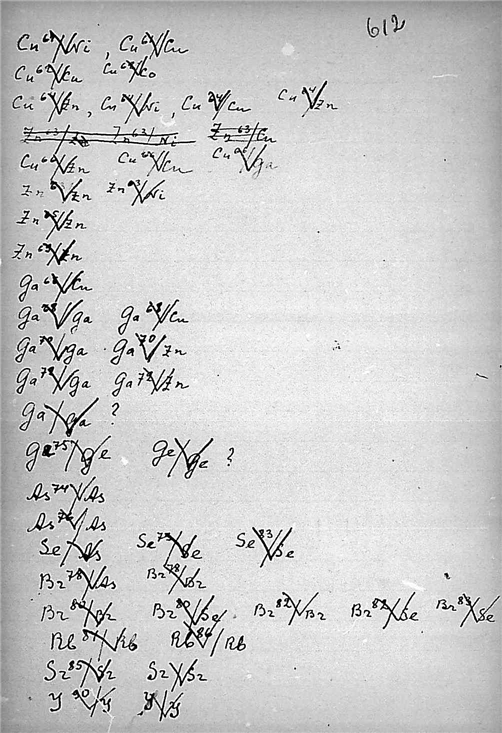 612
Cu⁶¹/Ni , Cu⁶¹/Cu
Cu⁶²/Cu Cu/Co
Cu⁶⁴/Zn , Cu⁶⁴/Ni , Cu⁶⁴/Cu Cu⁶⁴/Zn
Zn⁶³/ Zn⁶³/Ni Zn⁶³/Cu
Cu⁶⁶/Zn Cu⁶⁶/Cu Cu⁶⁶/Ga
Zn/Zn Zn⁶³/Ni
Zn⁶⁵/Zn
Zn⁶⁹/Zn
Ga⁶⁸/Cu
Ga⁶⁸/Ga Ga⁶⁸/Cu
Ga⁷⁰/Ga Ga⁷⁰/Zn
Ga⁷²/Ga Ga⁷²/Zn
Ga/Ga ?
Ge⁷⁵/Ge Ge/Ge ?
As⁷⁴/As
As⁷⁶/As
Se/As Se⁷⁵/Se Se⁸³/Se
Br⁷⁸/As Br⁷⁸/Br
Br⁸⁰/Br Br⁸⁰/Se Br⁸²/Br Br⁸²/Se Br⁸³/Se
Rb/Rb Rb⁸⁶/Rb
Sr⁸⁵/Sr Sr/Sr
Y⁹⁰/Y Y/Y